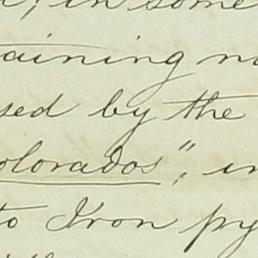 in some
aining
sed by the
olorados", in
to Iron py